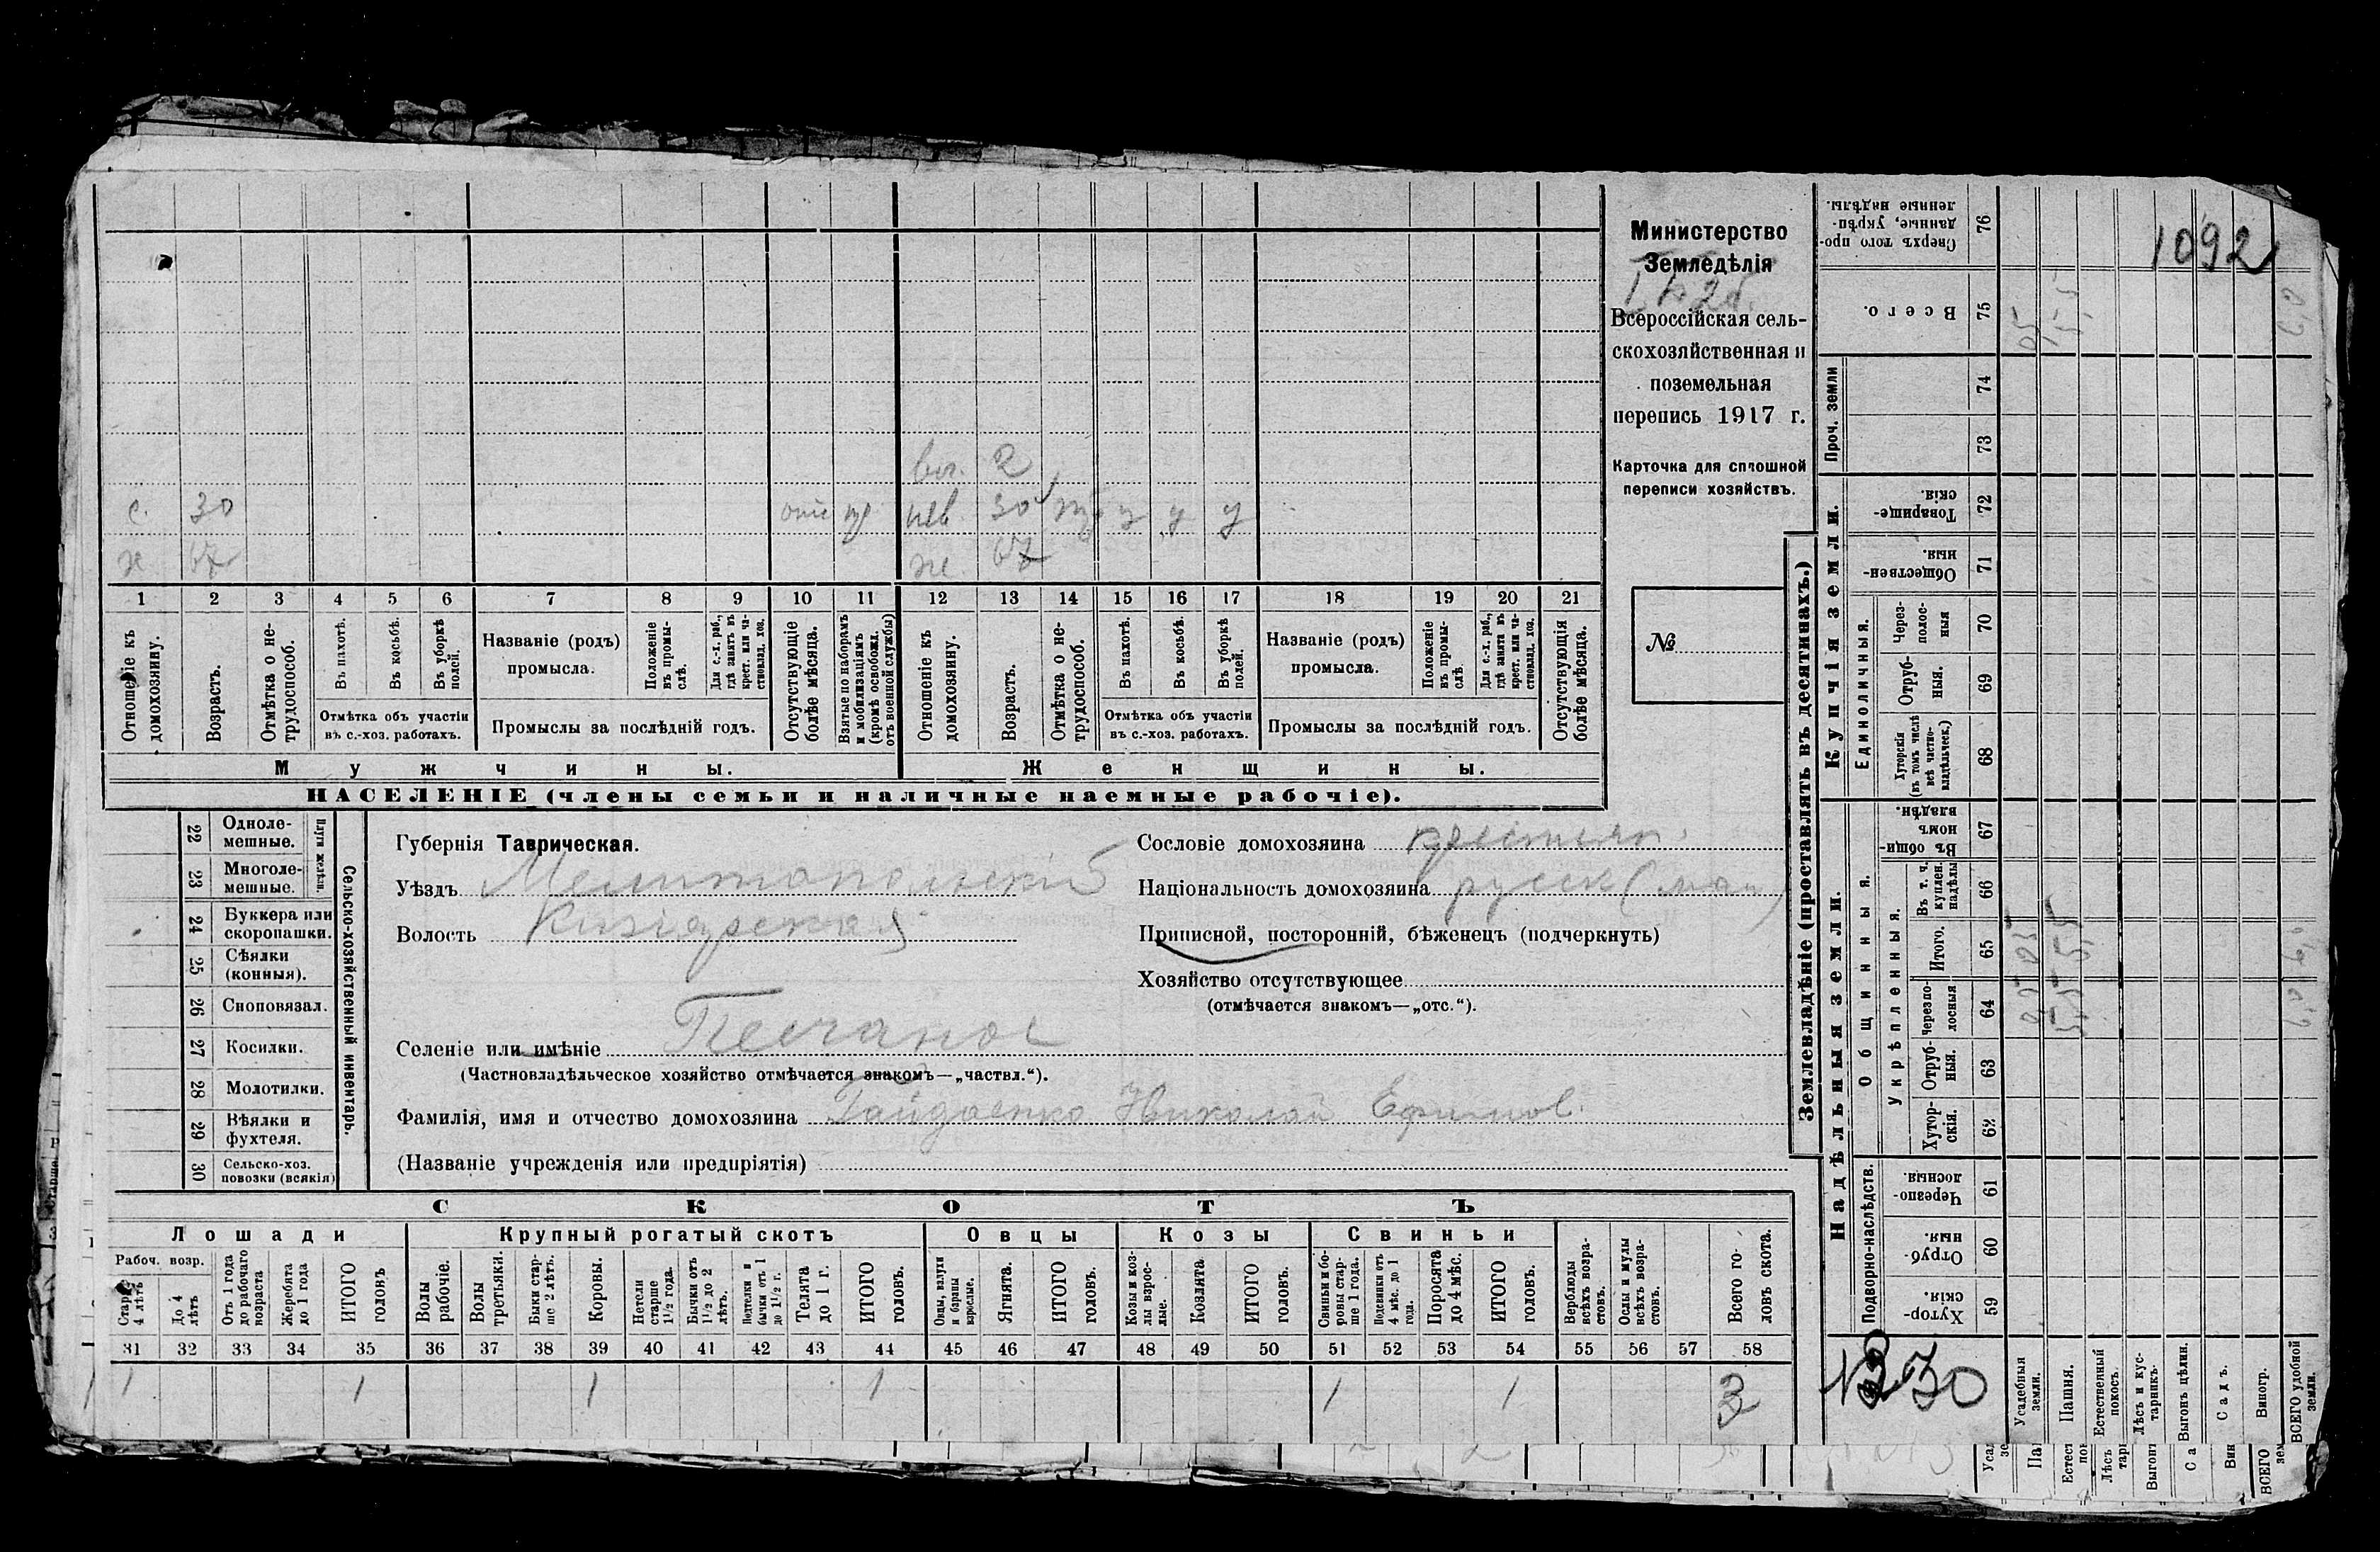 1092
Министерство
Земледѣлія
Всероссійская сель-
скохозяйственная и
поземельная
перепись 1917 г.
Карточка для сплошной
переписи хозяйствъ.
№
вн. 2
с. 30 отс нев. 30 у у у
х 67 ж. 67
1 2 3 4 5 6 7 8 9 10 11 12 13 14 15 16 17 18 19 20 21
Отношеніе къ домохозяину.
Возрастъ.
Отмѣтка о не-трудоспособ.
Въ пахотѣ.
Въ косьбѣ.
Въ уборкѣ полей.
Отмѣтка объ участіи
въ с.-хоз. работахъ.
Названіе (родъ)
промысла.
Положеніе въ промы-слѣ.
Для с.-х. раб., гдѣ занятъ въ крест. или ча-стновлад. хоз.
Промыслы за послѣдній годъ.
Отсутствующіе болѣе мѣсяца.
Взятые по наборамъ и мобилизаціямъ (кромѣ освобожд. отъ военной службы)
Отношеніе къ домохозяину.
Возрастъ.
Отмѣтка о не-трудоспособ.
Въ пахотѣ.
Въ косьбѣ.
Въ уборкѣ полей.
Отмѣтка объ участіи
въ с.-хоз. работахъ.
Названіе (родъ)
промысла.
Положеніе въ промы-слѣ.
Для с.-х. раб., гдѣ занята въ крест. или ча-стновлад. хоз.
Промыслы за послѣдній годъ.
Отсутствующія болѣе мѣсяца.
Мужчины. Женщины.
НАСЕЛЕНІЕ (члены семьи и наличные наемные рабочіе).
Сельско-хозяйственный инвентарь.
Плуги желѣзн.
22 Одноле-мешные.
23 Многоле-мешные.
24 Буккера или скоропашки.
25 Сѣялки (конныя).
26 Сноповязал.
27 Косилки.
28 Молотилки.
29 Вѣялки и фухтеля.
30 Сельско-хоз. повозки (всякія)
Губернія Таврическая.
Уѣздъ Мелитопольскій
Волость Кизіярская
Селеніе или имѣніе Песчаное
(Частновладѣльческое хозяйство отмѣчается знакомъ—„частвл.“).
Фамилія, имя и отчество домохозяина Гайдаенко Николай Ефимов.
(Названіе учрежденія или предпріятія)
Сословіе домохозяина крестьян.
Національность домохозяина русск (мал)
Приписной, посторонній, бѣженецъ (подчеркнуть)
Хозяйство отсутствующее
(отмѣчается знакомъ—„отс.“).
СКОТЪ
Лошади Крупный рогатый скотъ Овцы Козы Свиньи
Рабоч. возр.
Старше 4 лѣтъ
До 4 лѣтъ
Отъ 1 года до рабочаго возраста
Жеребята до 1 года
ИТОГО головъ
Волы рабочіе.
Волы третьяки.
Быки стар-ше 2 лѣтъ.
Коровы.
Нетели старше 1½ года.
Бычки отъ 1½ до 2 лѣтъ.
Подтелки и бычки отъ 1 до 1½ г.
Телята до 1 г.
ИТОГО головъ.
Овцы, валухи и бараны взрослые.
Ягнята.
ИТОГО головъ.
Козы и коз-лы взрос-лые.
Козлята
ИТОГО головъ.
Свиньи и бо-ровы стар-ше 1 года.
Подсвинки отъ 4 мѣс. до 1 года.
Поросята до 4 мѣс.
ИТОГО головъ.
Верблюды всѣхъ возра-стовъ.
Ослы и мулы всѣхъ возра-стовъ.
Всего го-ловъ скота.
31 32 33 34 35 36 37 38 39 40 41 42 43 44 45 46 47 48 49 50 51 52 53 54 55 56 57 58
1 1 1 1 1 1 3
Землевладѣніе (проставлять въ десятинахъ.)
Надѣльныя земли. Купчія земли. Проч. земли
Подворно-наслѣдств.
Общинныя.
Укрѣпленныя.
Единоличныя.
Хутор-скія. 59
Отруб-ныя. 60
Черезпо-лосныя 61
Хутор-скія. 62
Отруб-ныя. 63
Черезпо-лосныя 64
Итого. 65
Въ т. ч. куплен. надѣлы 66
Въ общи-номъ владѣн. 67
Хуторскія (въ томъ числѣ всѣ частно-владѣльческ.) 68
Отруб-ныя. 69
Через-полос-ныя 70
Обществен-ныя. 71
Товарище-скія. 72
73
74
Всего. 75
Сверхъ того про-данные, укрѣп-ленные надѣлы. 76
Усадебныя земли. 05 05 05
Пашня. 5,5 5,5 5,5
Естественный покосъ.
Лѣсъ и кус-тарникъ.
Выгонъ цѣлин.
Садъ.
Виногр.
ВСЕГО удобной земли. 6,0 6,0 6,0